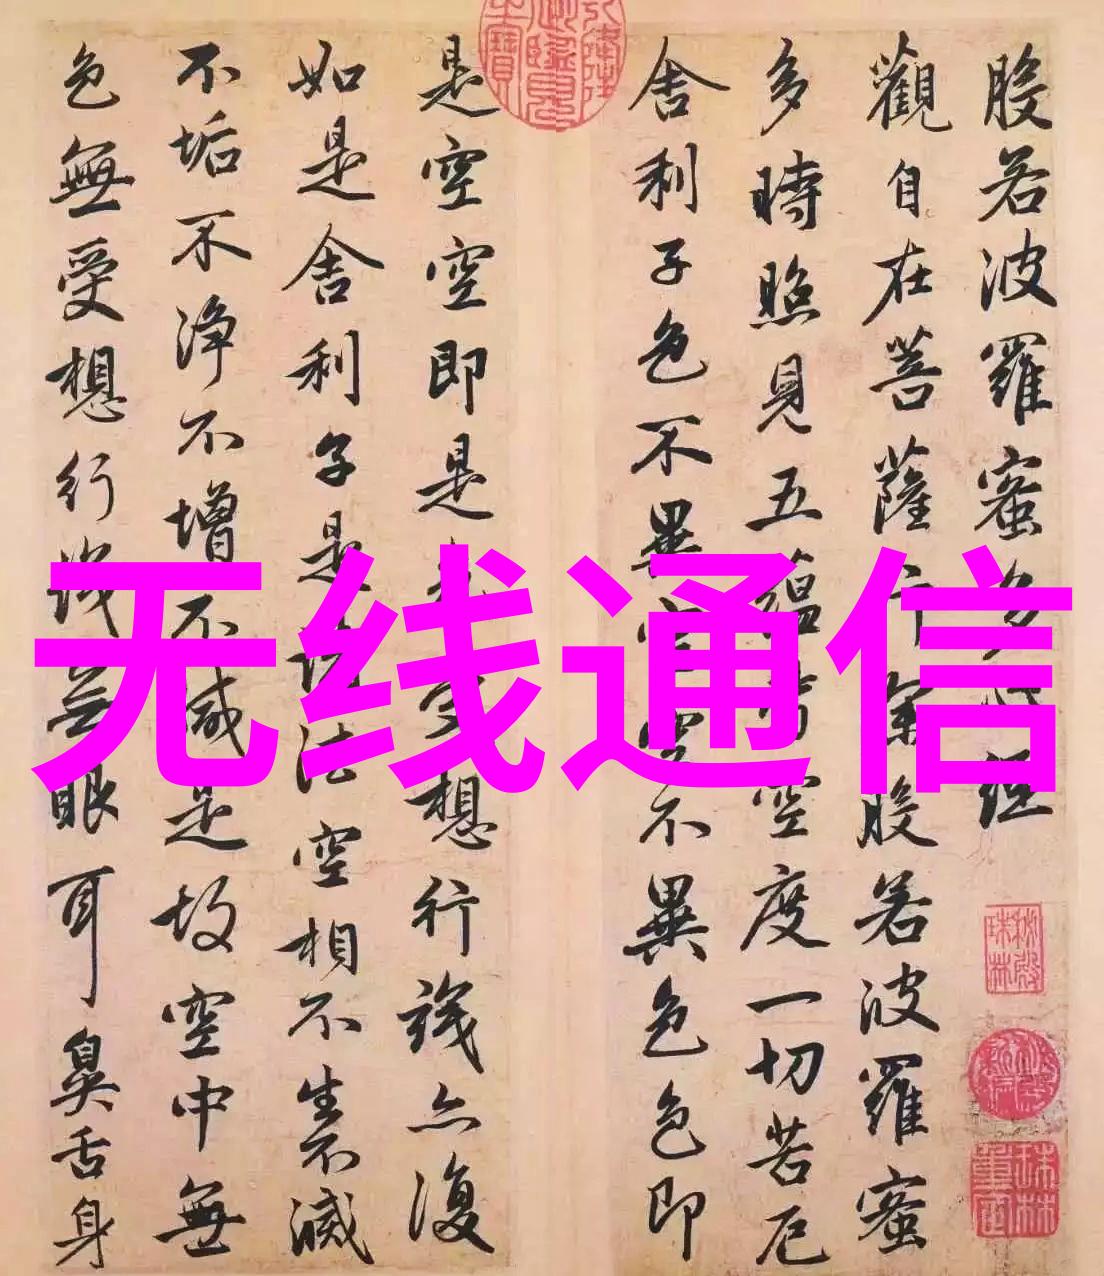 般若波羅蜜多心經
觀自在菩薩行深般若波羅蜜
多時照見五蘊皆空度一切苦厄
舍利子色不異空空不異色色即
是空空即是色受想行識亦復
如是舍利子是諸法空相不生不滅
不垢不淨不增不減是故空中無
色無受想行識无眼耳鼻舌身
无线通信